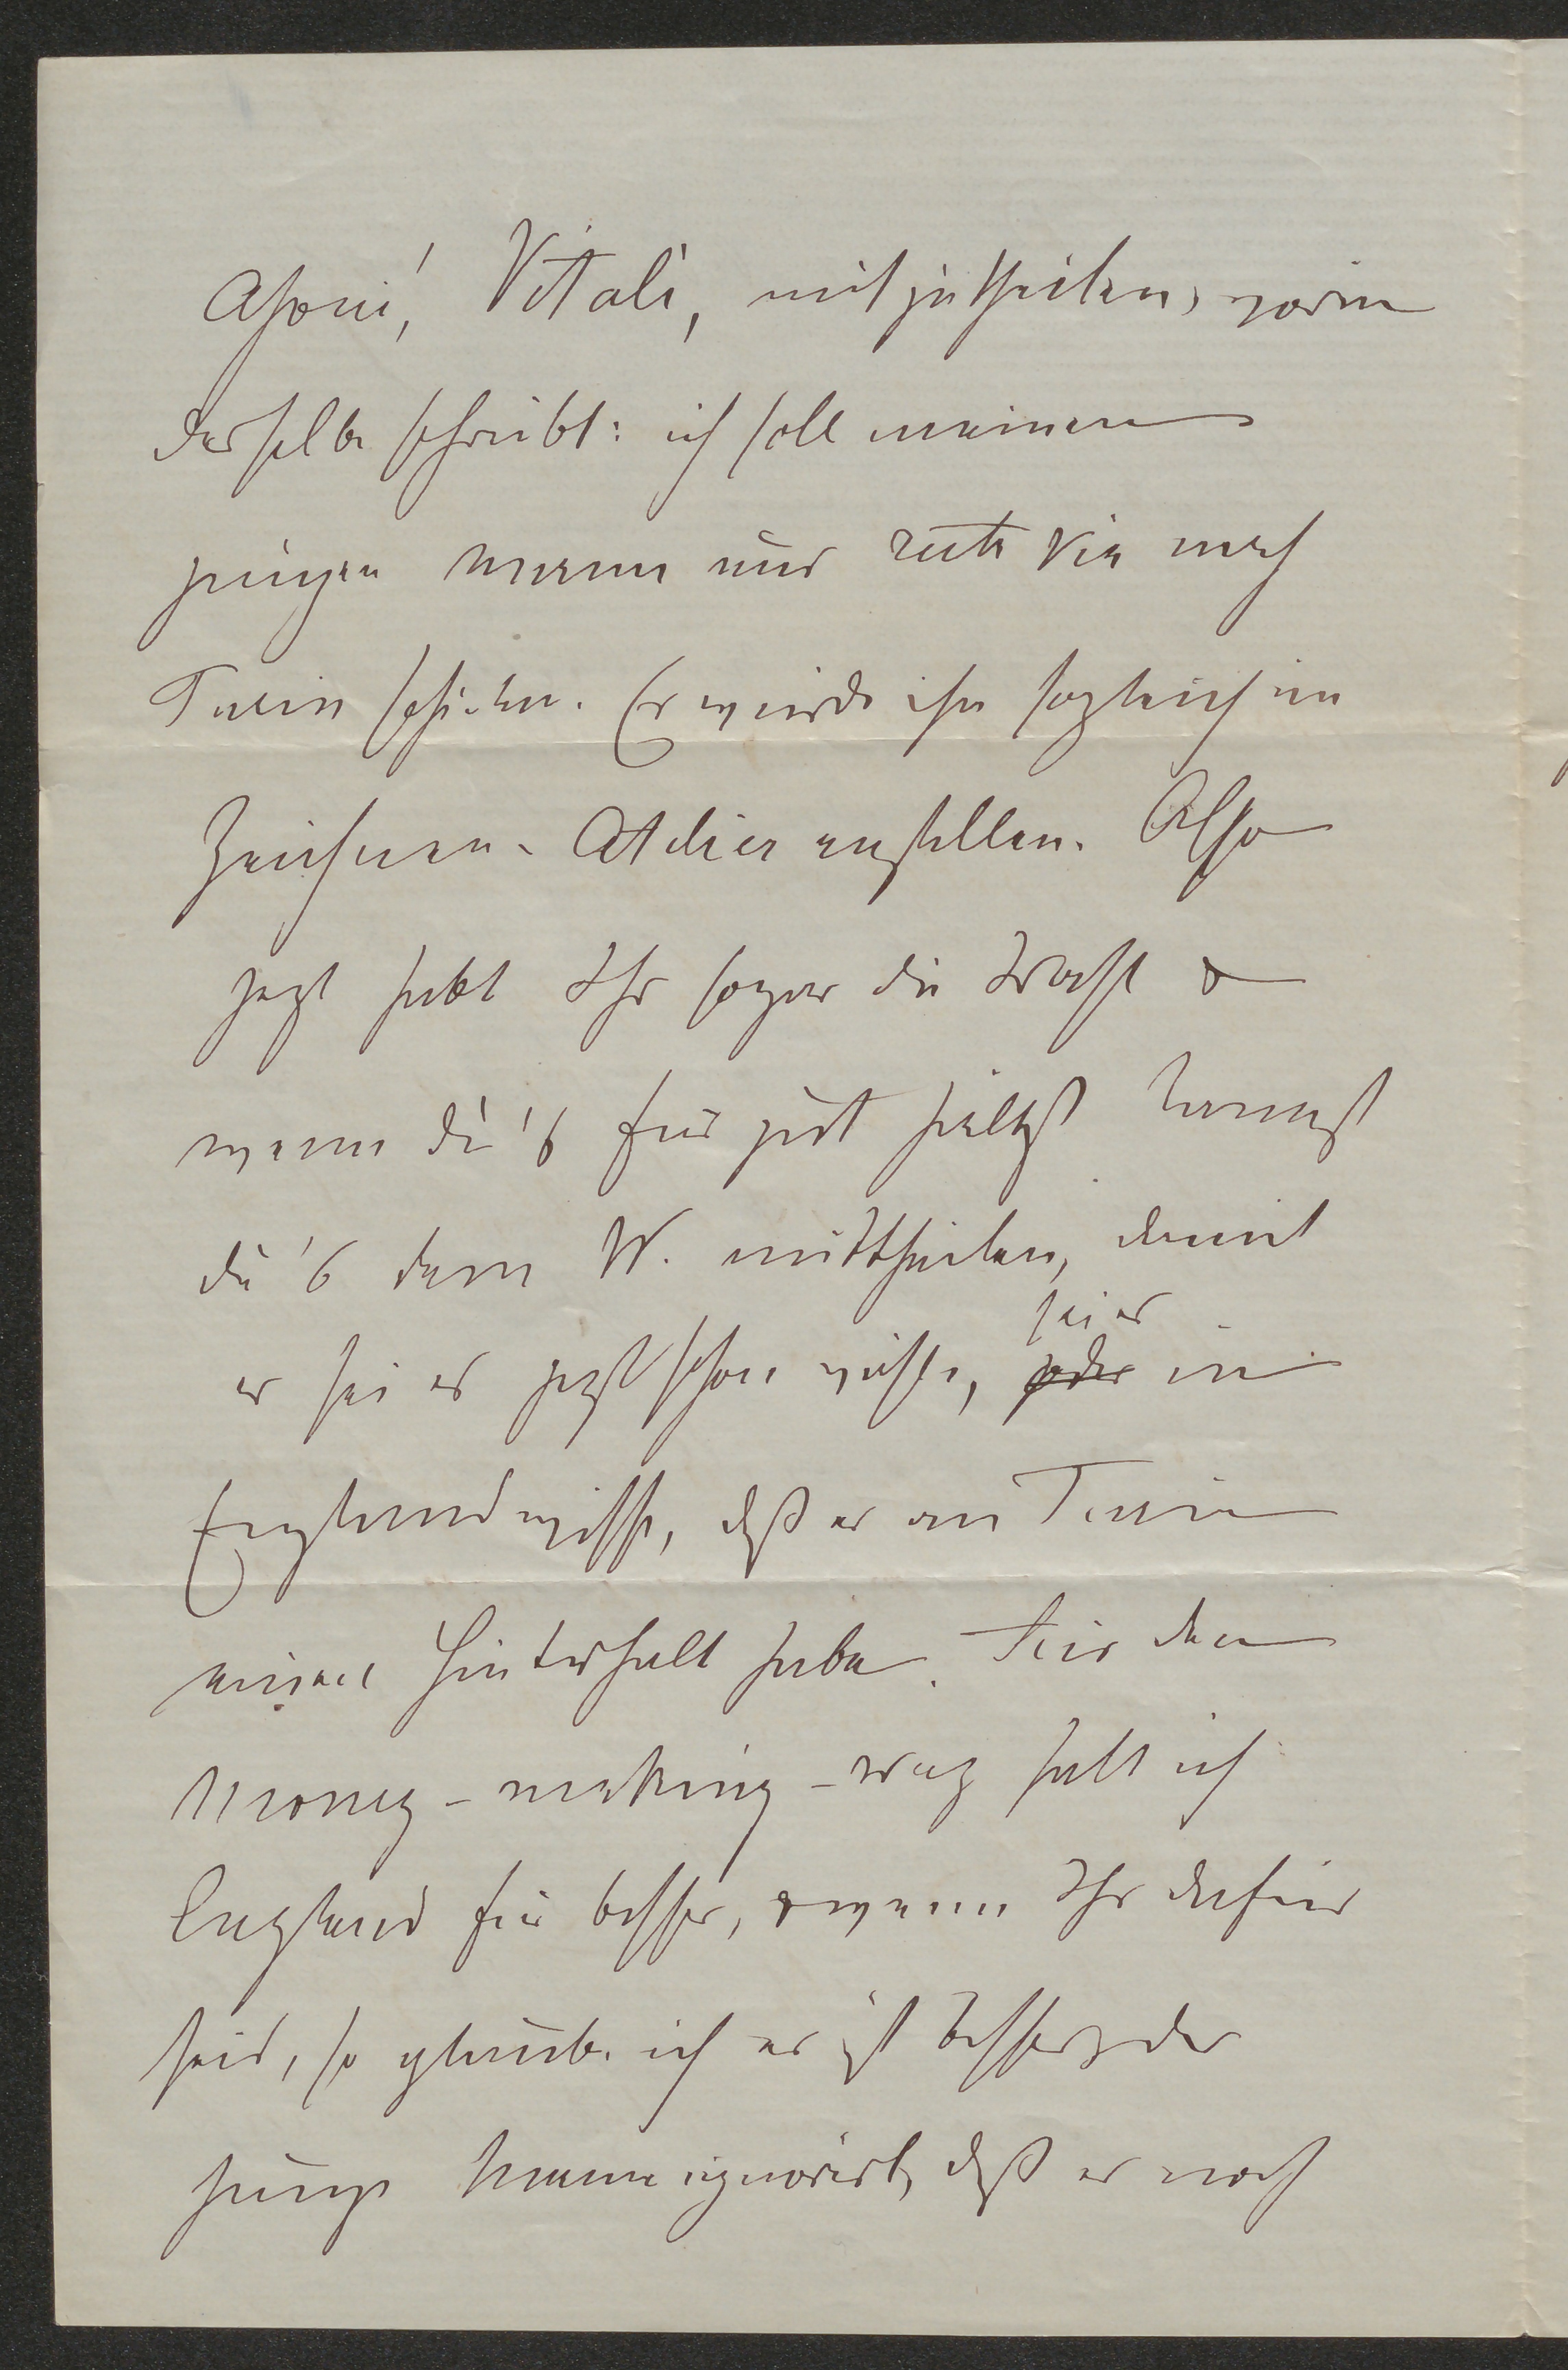 Asproni, Vitali, mitzutheilen, worin
derselbe schreibt: ich soll meinen
jungen Mann nur recta via nach
Turin schicken. Er würde ihn sogleich im
Zeichnen-Atelier anstellen. Also
jezt habt Ihr sogar die Wahl &
wenn du's für gut hältst kannst
du's dem W. mittheilen, damit
er sei es jezt schon wisse, sei es
oder in
England wisse, daß er an Turin
einen Hinterhalt habe. Für den
Money-making-weg halt ich
England für besser, & wenn Ihr dafür
seid, so glaube ich es ist besser, der
junge Mann ignorirt, daß er noch